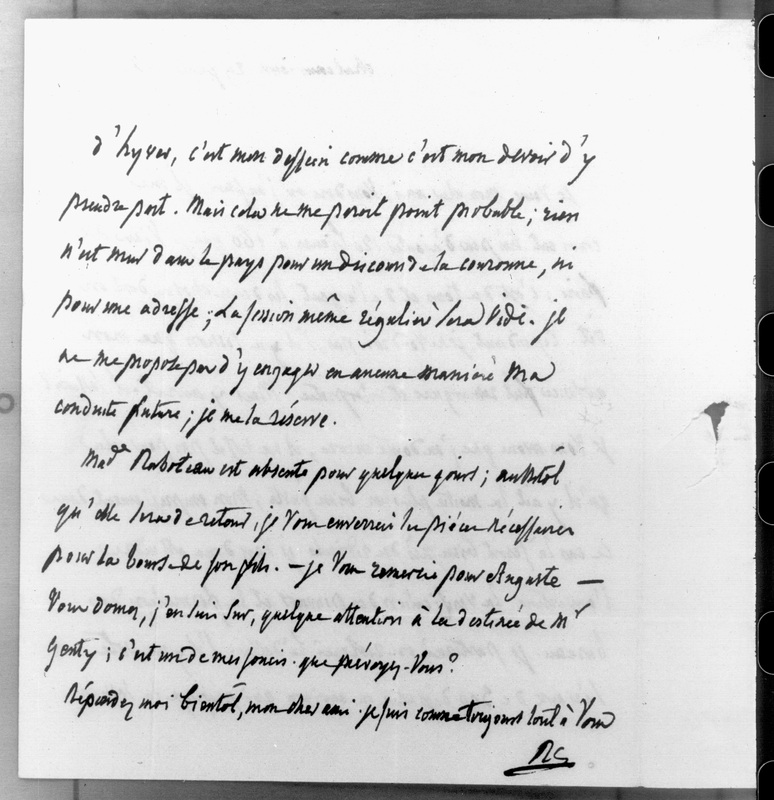 d'hyver, c'est mon dessein comme c'est mon devoir d'y
prendre part. Mais cela ne me paroit point probable; rien
n'est mur dans le pays pour un discours de la couronne, ni
pour une adresse; La session même régulière sera vide. je
ne me propose pas d'y engager en aucune manière Ma
conduite future; je me la réserve.
Made Raboteau est absente pour quelques jours; aussitôt
qu'elle sera de retour, je Vous enverrai les pièces nécessaires
pour la bourse de son fils. — je Vous remercie pour Auguste —
Vous donnez, j'en suis sur, quelque attention à la destinée de Mr
Genty; c'est un de mes soucis. que prévoyez-Vous?
Répondez moi bientôt, mon cher ami. je suis comme toujours tout à Vous
RC